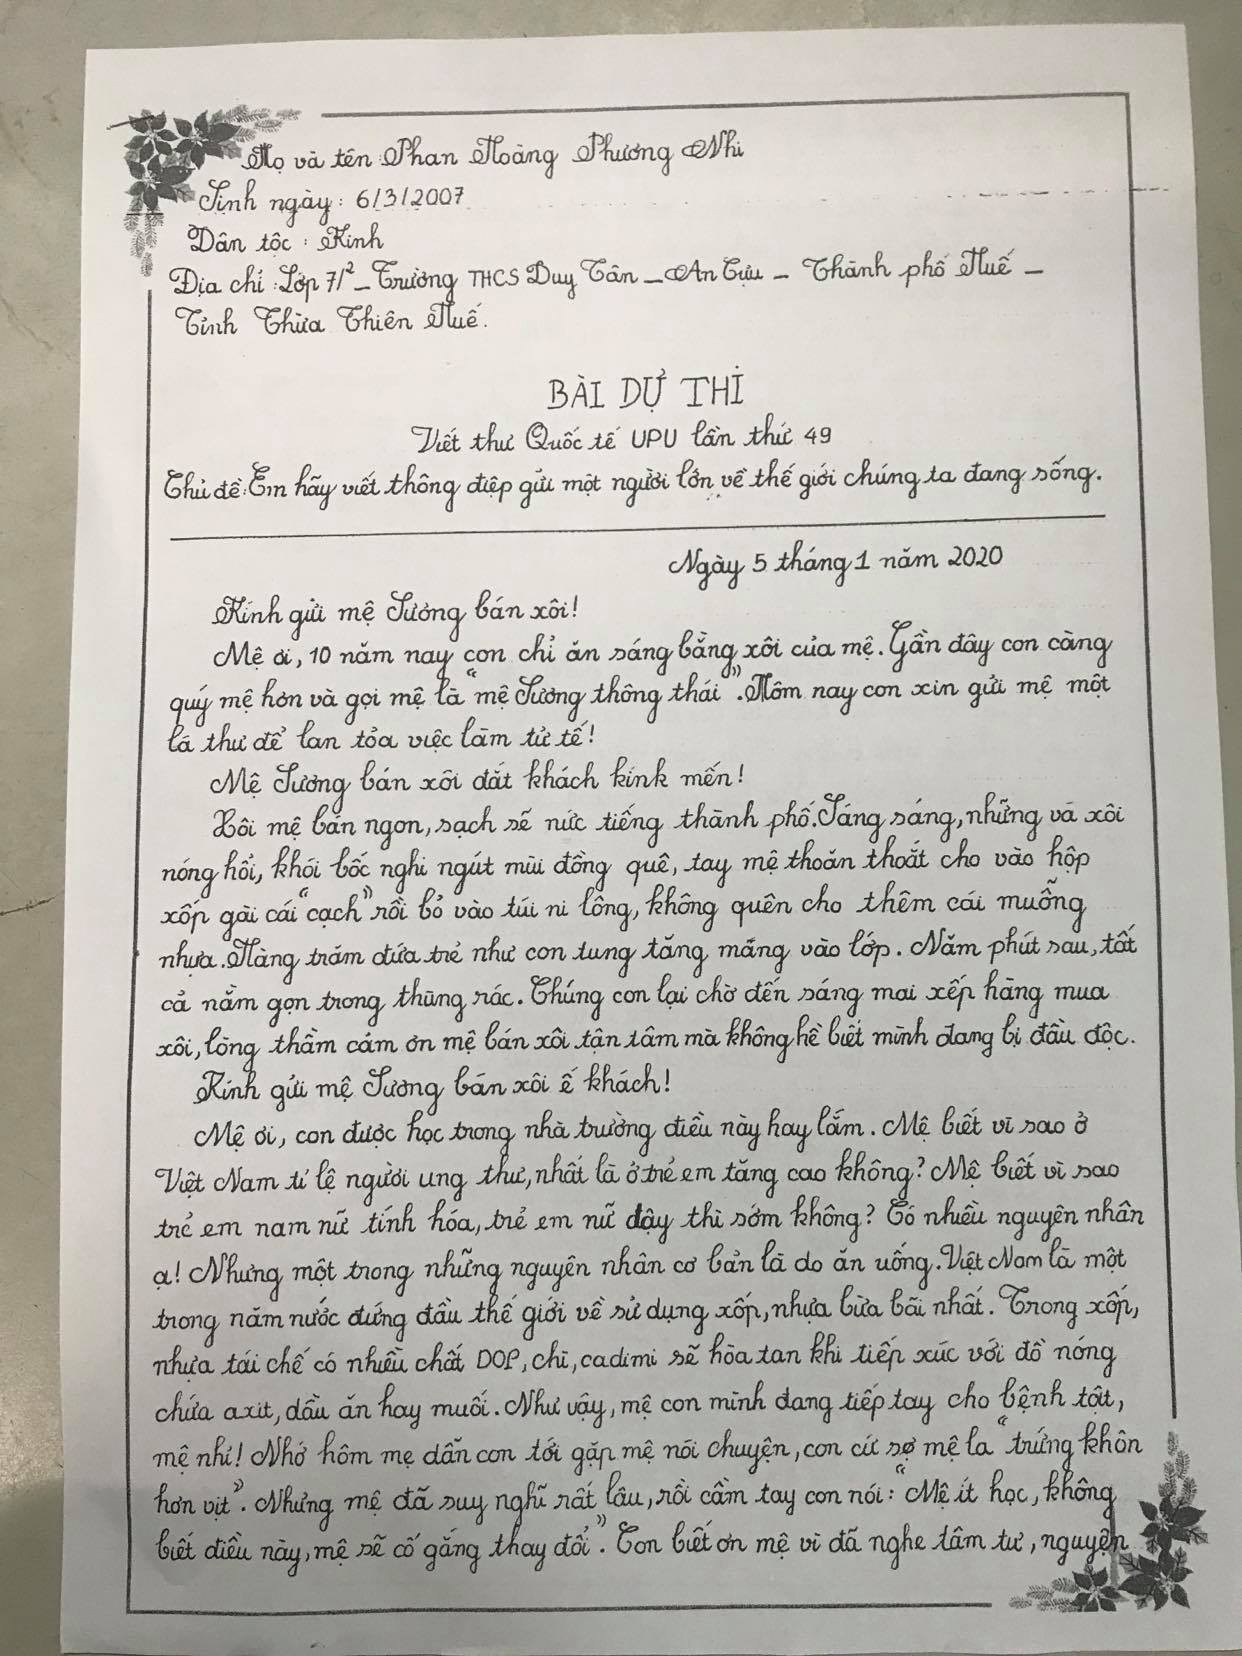 Họ và tên: Phan Hoàng Phương Nhi
Sinh ngày: 6/3/2007
Dân tộc: Kinh
Địa chỉ: Lớp 7/2 – Trường THCS Duy Tân – An Cựu – Thành phố Huế –
Tỉnh Thừa Thiên Huế.
BÀI DỰ THI
Viết thư Quốc tế UPU lần thứ 49
Chủ đề: Em hãy viết thông điệp gửi một người lớn về thế giới chúng ta đang sống.
Ngày 5 tháng 1 năm 2020
Kính gửi mệ Sương bán xôi!
Mệ ơi, 10 năm nay con chỉ ăn sáng bằng xôi của mệ. Gần đây con càng
quý mệ hơn và gọi mệ là “mệ Sương thông thái”. Hôm nay con xin gửi mệ một
lá thư để lan tỏa việc làm tử tế!
Mệ Sương bán xôi đắt khách kính mến!
Xôi mệ bán ngon, sạch sẽ nức tiếng thành phố. Sáng sáng, những vá xôi
nóng hổi, khói bốc nghi ngút mùi đồng quê, tay mệ thoăn thoắt cho vào hộp
xốp gài cái “cạch” rồi bỏ vào túi ni lông, không quên cho thêm cái muỗng
nhựa. Hàng trăm đứa trẻ như con tung tăng mang vào lớp. Năm phút sau, tất
cả nằm gọn trong thùng rác. Chúng con lại chờ đến sáng mai xếp hàng mua
xôi, lòng thầm cảm ơn mệ bán xôi tận tâm mà không hề biết mình đang bị đầu độc.
Kính gửi mệ Sương bán xôi ế khách!
Mệ ơi, con được học trong nhà trường điều này hay lắm. Mệ biết vì sao ở
Việt Nam tỉ lệ người ung thư, nhất là ở trẻ em tăng cao không? Mệ biết vì sao
trẻ em nam nữ tính hóa, trẻ em nữ dậy thì sớm không? Có nhiều nguyên nhân
ạ! Nhưng một trong những nguyên nhân cơ bản là do ăn uống. Việt Nam là một
trong năm nước đứng đầu thế giới về sử dụng xốp, nhựa bừa bãi nhất. Trong xốp,
nhựa tái chế có nhiều chất DOP, chì, cadimi sẽ hòa tan khi tiếp xúc với đồ nóng
chứa axit, dầu ăn hay muối. Như vậy, mệ con mình đang tiếp tay cho bệnh tật,
mệ nhỉ! Nhớ hôm mẹ dẫn con tới gặp mệ nói chuyện, con cứ sợ mệ la “trứng khôn
hơn vịt”. Nhưng mệ đã suy nghĩ rất lâu, rồi cầm tay con nói: “Mệ ít học, không
biết điều này, mệ sẽ cố gắng thay đổi”. Con biết ơn mệ vì đã nghe tâm tư, nguyện